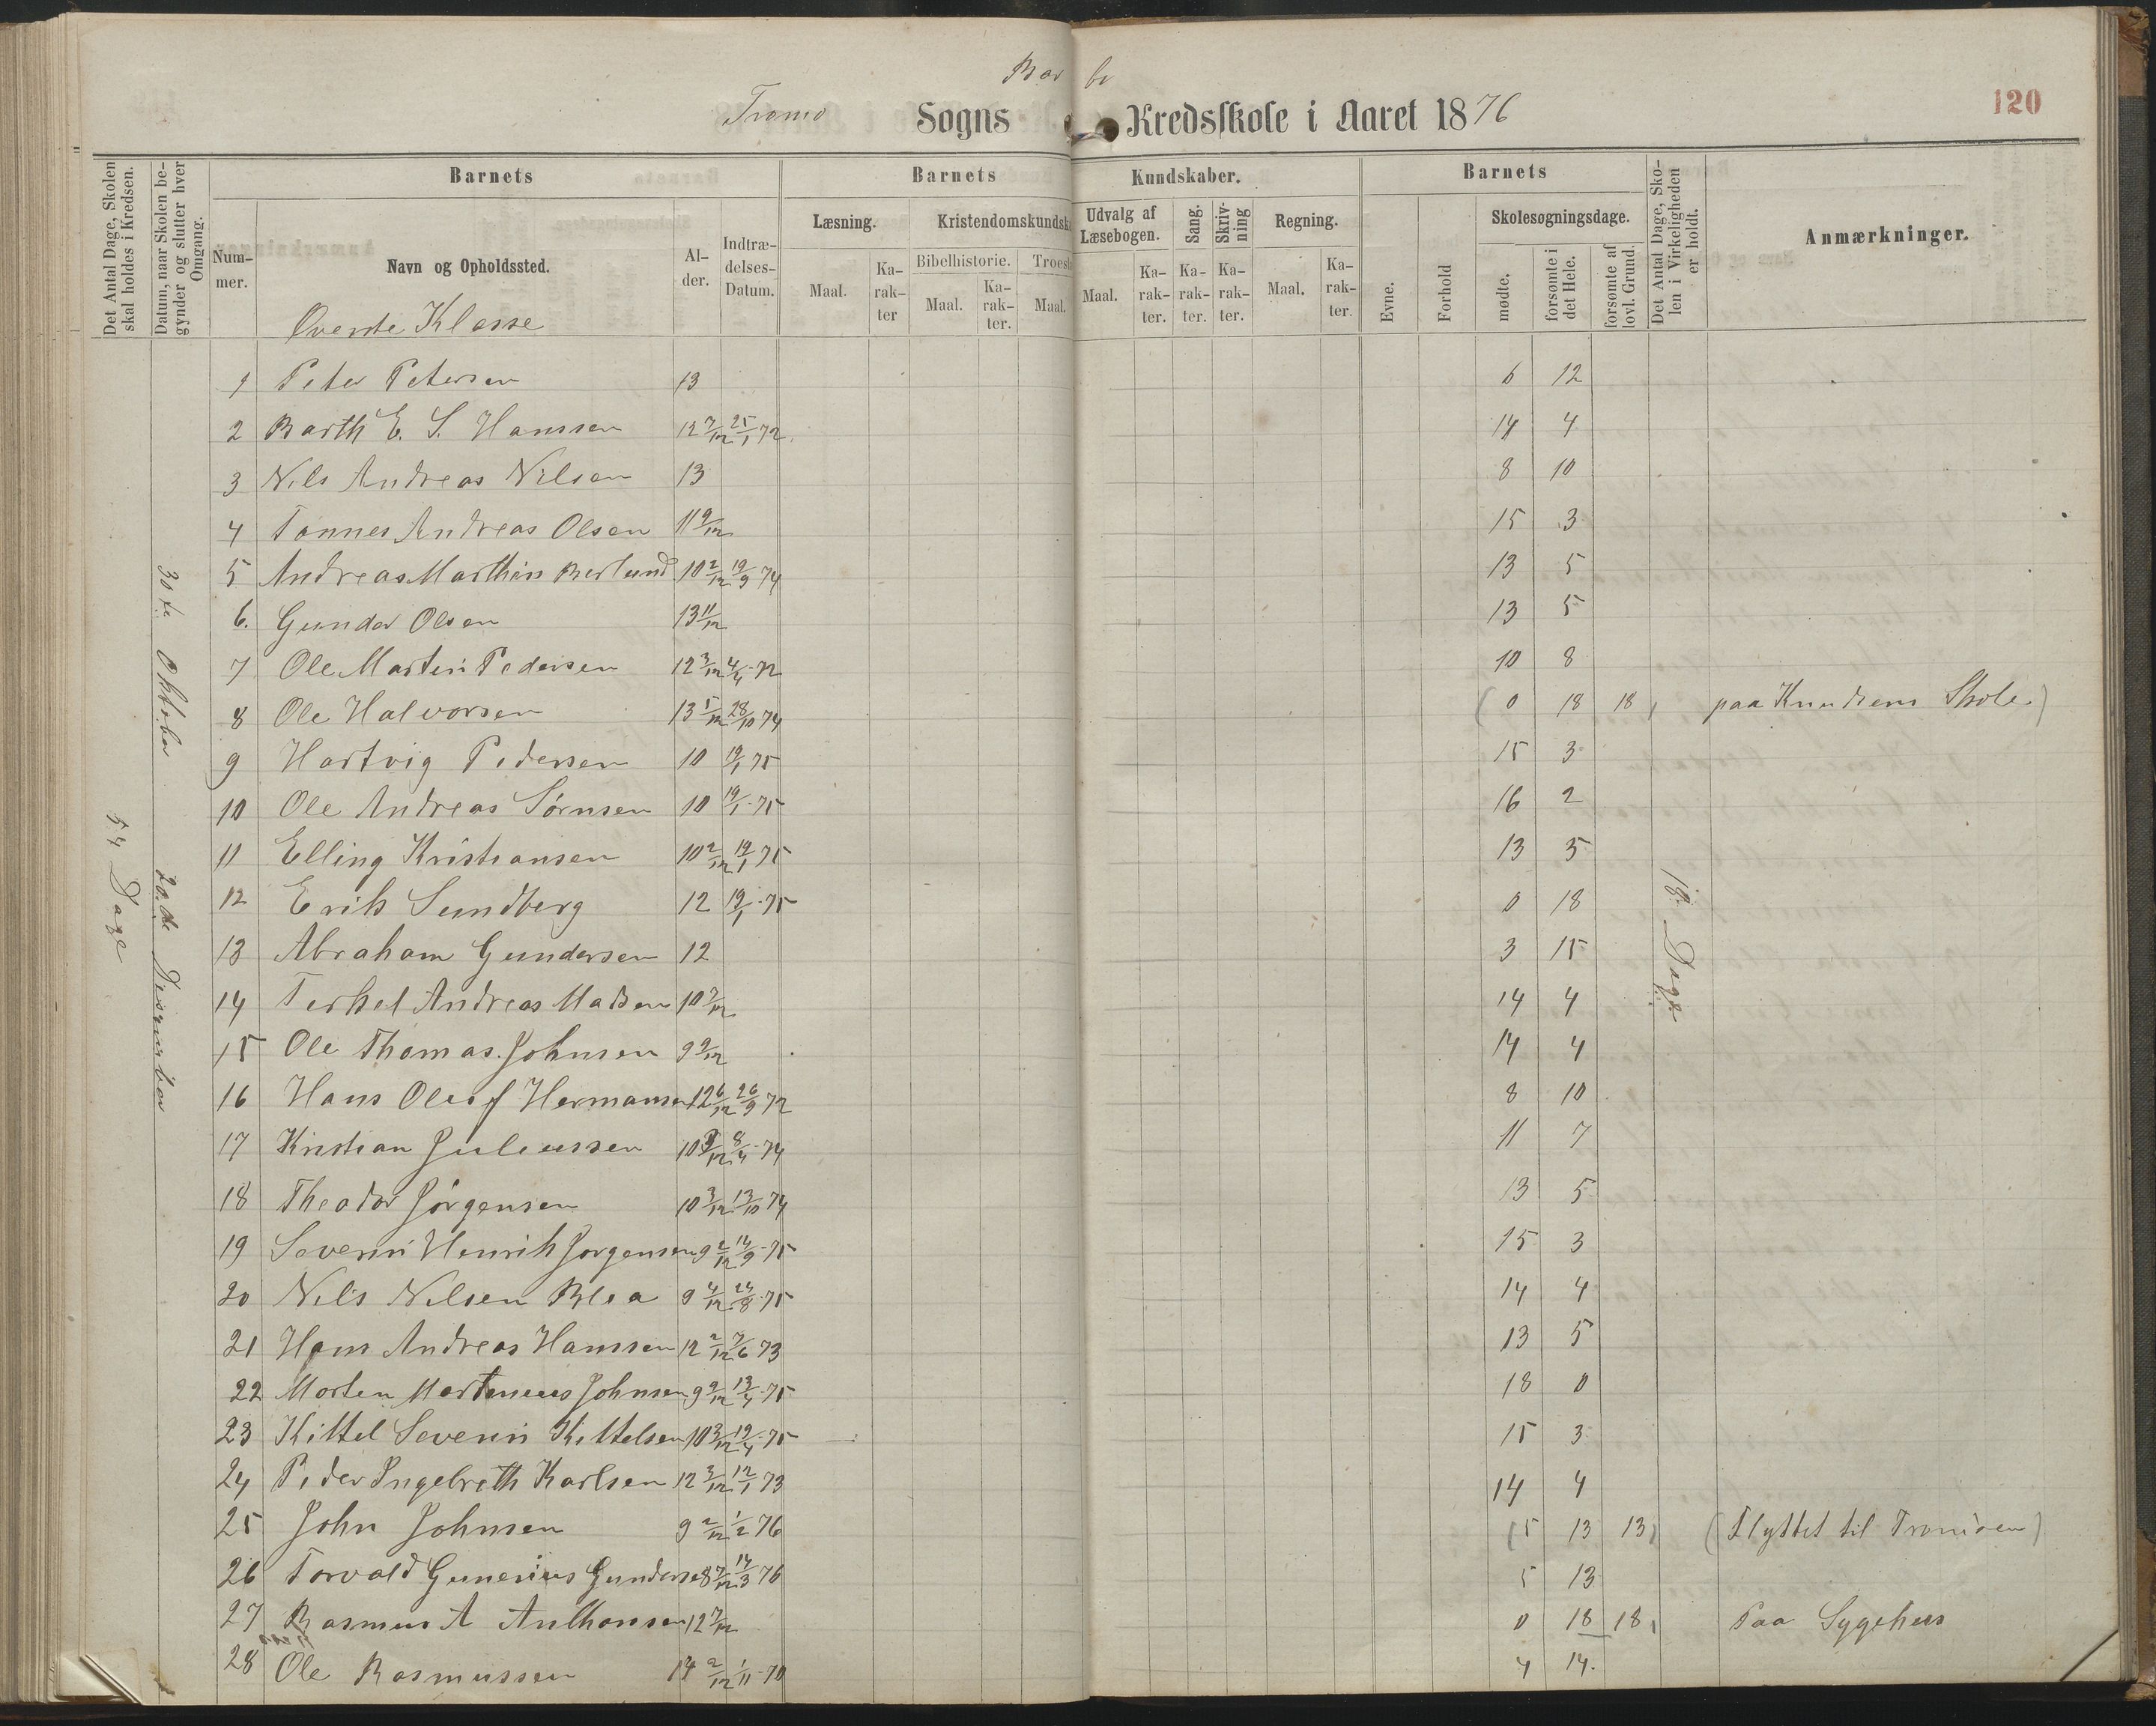 Barbo
Tromø Sogns Kredsskole i Aaret 1876
120
Det Antal Dage, Skolen skal holdes i Kredsen.
Datum, naar Skolen begynder og slutter hver Omgang.
Barnets
Barnets Kundskaber.
Barnets
Det Antal Dage, Skolen i Virkeligheden er holdt.
Anmærkninger.
Nummer.
Navn og Opholdssted.
Alder.
Indtrædelses-Datum.
Læsning.
Kristendomskundsk
Udvalg af Læsebogen.
Sang.
Skrivning
Regning.
Evne.
Forhold
Skolesøgningsdage.
Bibelhistorie.
Troesl
Maal.
Karakter
Maal.
Karakter.
Maal.
Maal.
Karakter.
Karakter.
Karakter.
Maal.
Karakter.
mødte.
forsømte i det Hele.
forsømte af lovl. Grund.
Øverste Klasse
54 Dage
30te Oktober 20de Desember
18 Dage
1 Peter Petersen 13 6 12
2 Barth E. S. Hanssen 12 7/12 25/1 72. 14 4
3 Nils Andreas Nilsen 13 8 10
4 Tønnes Andreas Olsen 11 9/12 15 3
5 Andreas Marthin Berlund 10 2/12 19/9 74 13 5
6. Gunder Olsen 13 11/12 13 5
7 Ole Martin Pedersen 12 3/12 4/4-72 10 8
8 Ole Halvorsen 13 5/12 28/10 74 (0 18 18, paa Knudsens Skole.)
9 Hartvig Pedersen 10 19/1 75 15 3
10 Ole Andreas Sørnsen 10 19/1-75 16 2
11 Elling Kristiansen 10 2/12 19/1 75 13 5
12 Erik Sundberg 12 19/1-75 0 18
13 Abraham Gundersen 12 3 15
14 Terkel Andreas Madsen 10 7/12 14 4
15 Ole Thomas Johnsen 9 9/12 14 4
16 Hans Oluf Hermansen 12 6/12 26/9 72 8 10
17 Kristian Juliussen 10 8/4-74 11 7
18 Theodor Jørgensen 10 3/12 13/10 74 13 5
19 Severin Henrik Jørgensen 9 2/12 14/9-75 15 3
20 Nils Nilsen Blea 9 4/12 24/8-75 14 4
21 Hans Andreas Hanssen 12 2/12 7/6 73 13 5
22 Morten Martinius Johnsen 9 9/12 13/4-75 18 0
23 Kittel Severin Kittelsen 10 3/12 19/4-75 15 3
24 Peder Ingebreth Karlsen 12 3/12 12/1 73 14 4
25 John Johnsen 9 2/12 1/2 76 (5 13 13, (Flyttet til Tromøen)
26 Torvald Gunerius Gunderse 8 7/12 14/3 76 5 13
27 Rasmus A Anthonsen 12 7/12 0 18 18, Paa Sygehus
28 Ole Rasmussen 14 2/12 1/11-70 4 14.